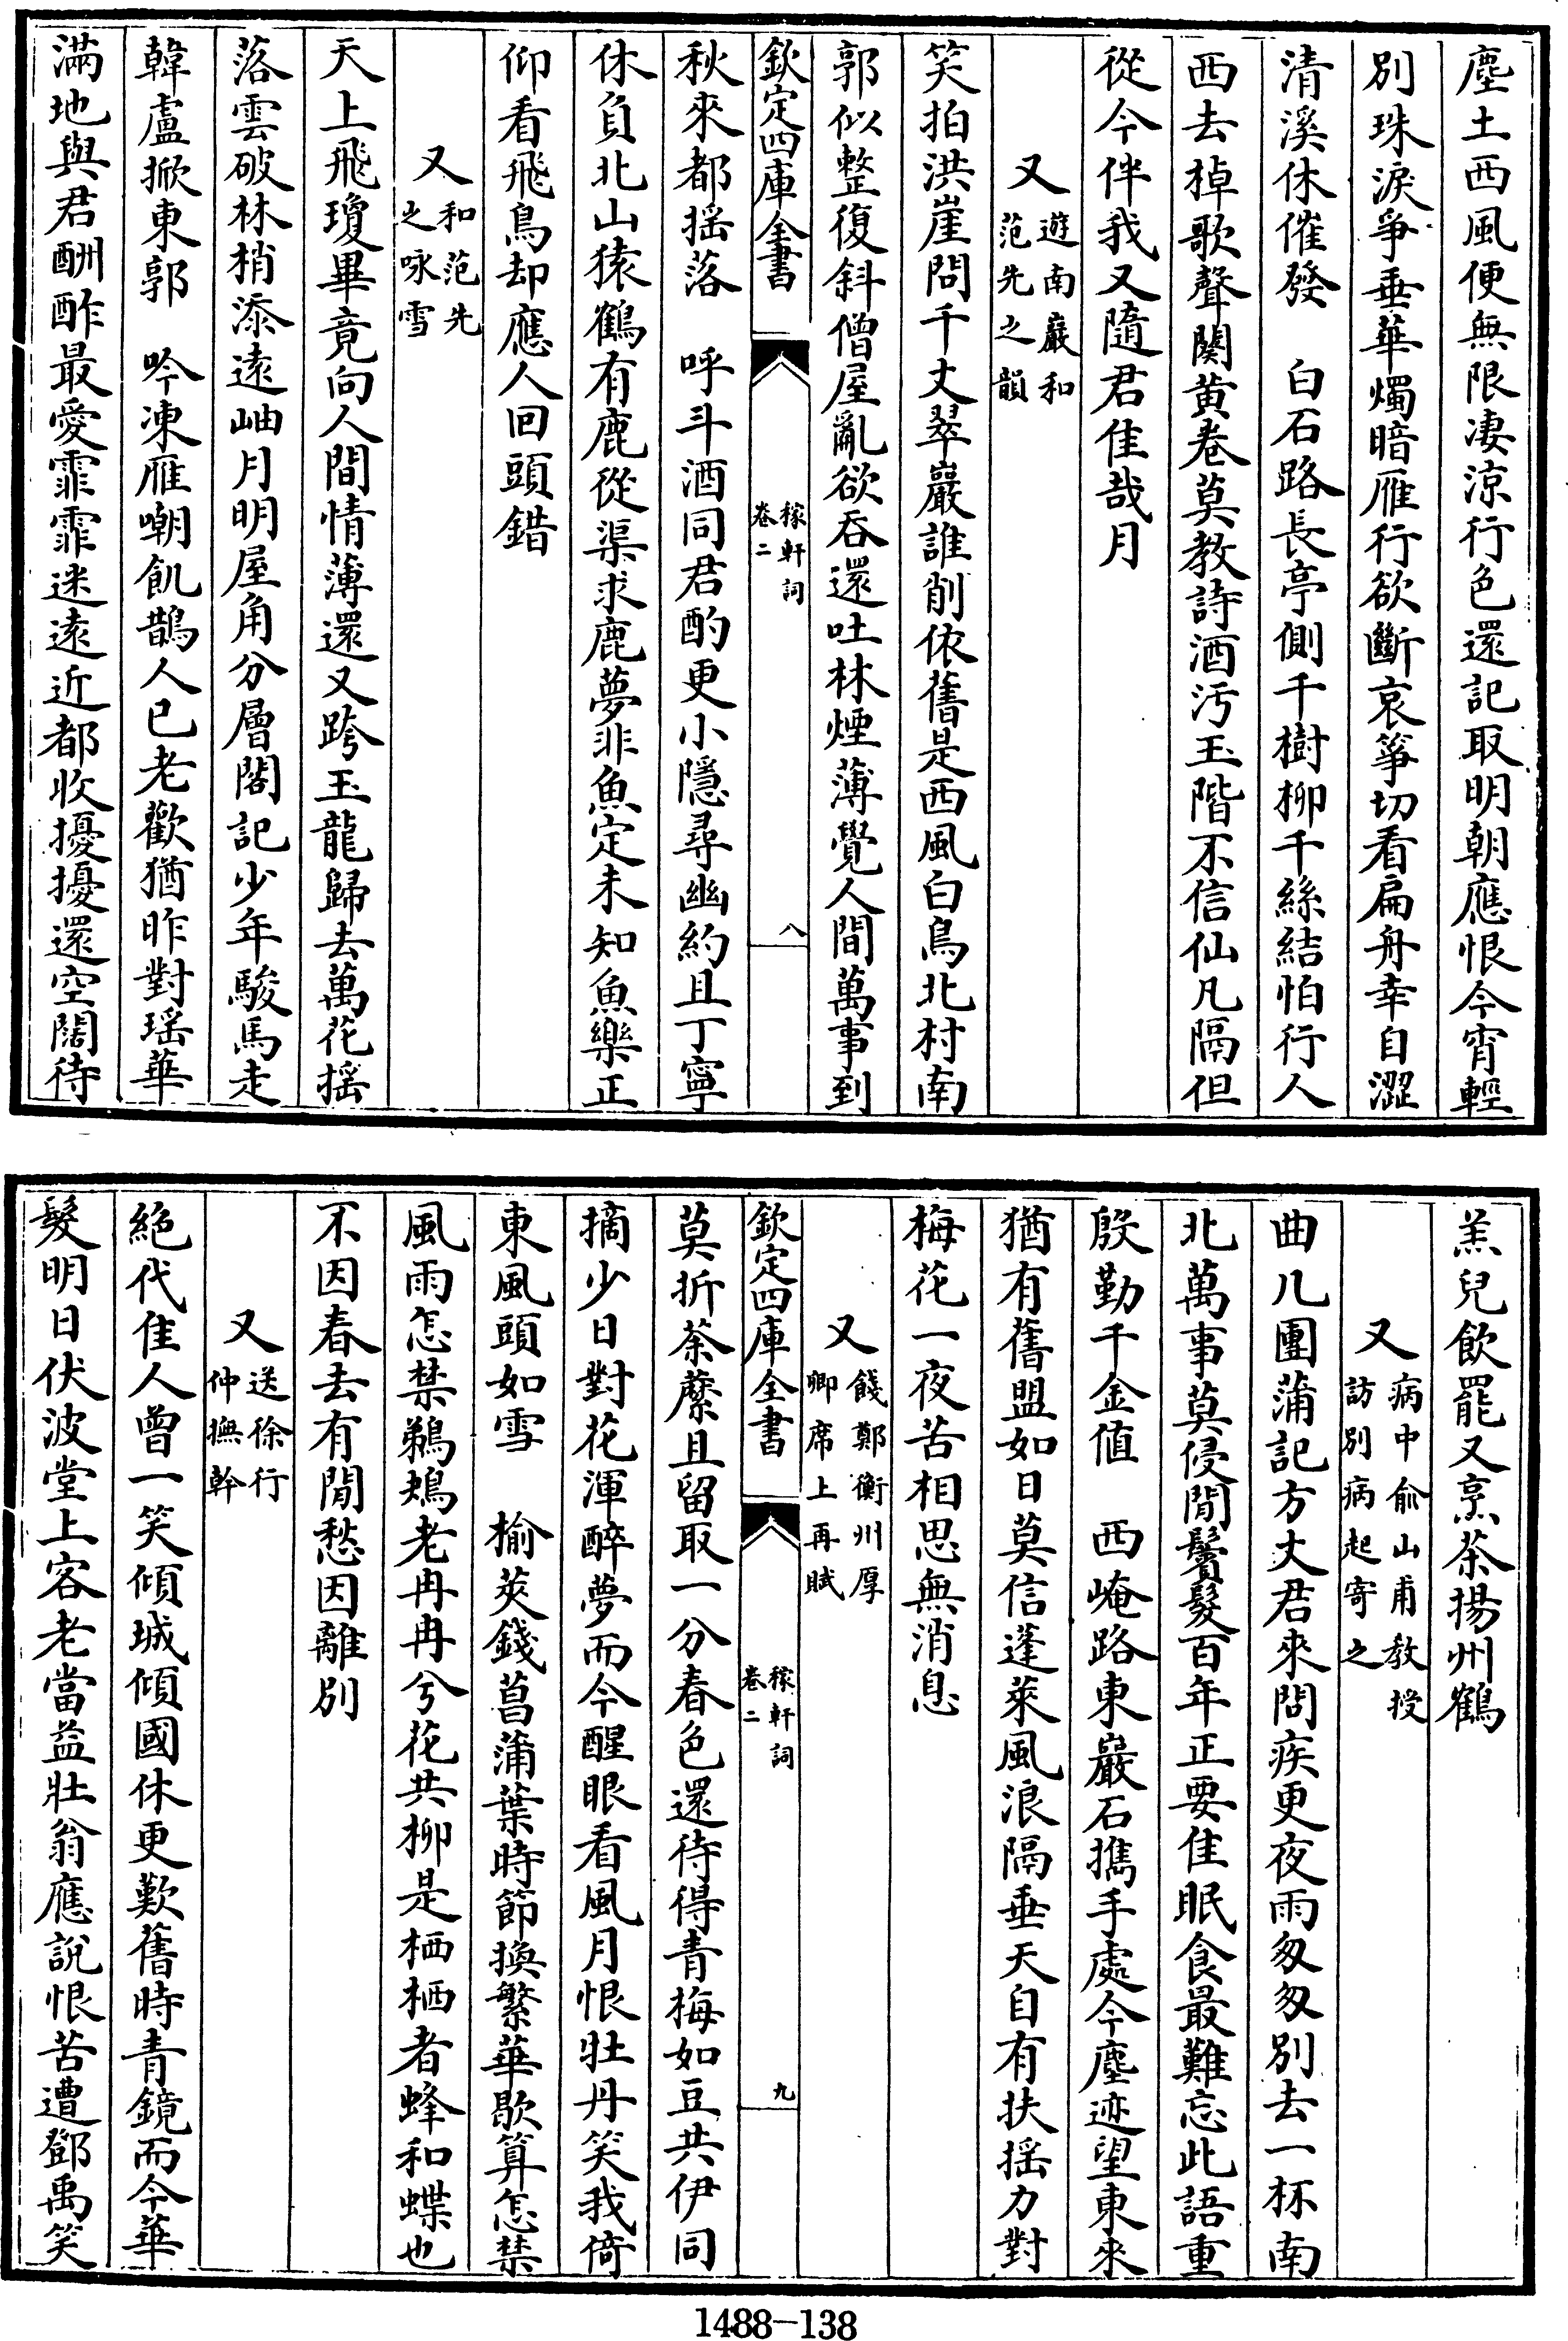 塵土西風便無限凄涼行色還記取明朝應恨今宵輕
別珠淚爭垂華燭暗雁行欲斷哀箏切看扁舟幸自澀
清溪休催發　白石路長亭側千樹柳千絲結怕行人
西去棹歌聲闋黄卷莫教詩酒汚玉階不信仙凡隔但
從今伴我又隨君佳哉月
又遊南巖和范先之韻
笑拍洪崖問千丈翠巖誰削依舊是西風白鳥北村南
郭似整復斜僧屋亂欲吞還吐林煙薄覺人間萬事到
欽定四庫全書
稼軒詞
卷二
八
秋來都揺落　呼斗酒同君酌更小隱尋幽約且丁寧
休負北山猿鶴有鹿從渠求鹿夢非魚定未知魚樂正
仰看飛鳥却應人回頭錯
又和范先之咏雪
天上飛瓊畢竟向人間情薄還又跨玉龍歸去萬花揺
落雲破林梢添遠岫月明屋角分層閣記少年駿馬走
韓盧掀東郭　吟凍雁嘲飢鵲人已老歡猶昨對瑶華
滿地與君酬酢最愛霏霏迷遠近都收擾擾還空闊待
羔兒飲罷又烹茶揚州鶴
又病中俞山甫教授訪別病起寄之
曲几團蒲記方丈君來問疾更夜雨匆匆別去一杯南
北萬事莫侵閒鬢髮百年正要佳眠食最難忘此語重
殷勤千金値　西崦路東巖石攜手處今塵迹望東來
猶有舊盟如日莫信蓬萊風浪隔垂天自有扶揺力對
梅花一夜苦相思無消息
又餞鄭衡州厚卿席上再賦
欽定四庫全書
稼軒詞
卷二
九
莫折荼蘼且留取一分春色還待得青梅如豆共伊同
摘少日對花渾醉夢而今醒眼看風月恨牡丹笑我倚
東風頭如雪　榆莢錢菖蒲葉時節換繁華歇算怎禁
風雨怎禁鵜鴂老冉冉兮花共柳是栖栖者蜂和蝶也
不因春去有閒愁因離別
又送徐行仲撫幹
絶代佳人曾一笑傾城傾國休更歎舊時青鏡而今華
髮明日伏波堂上客老當益壯翁應說恨苦遭鄧禹笑
1488-138